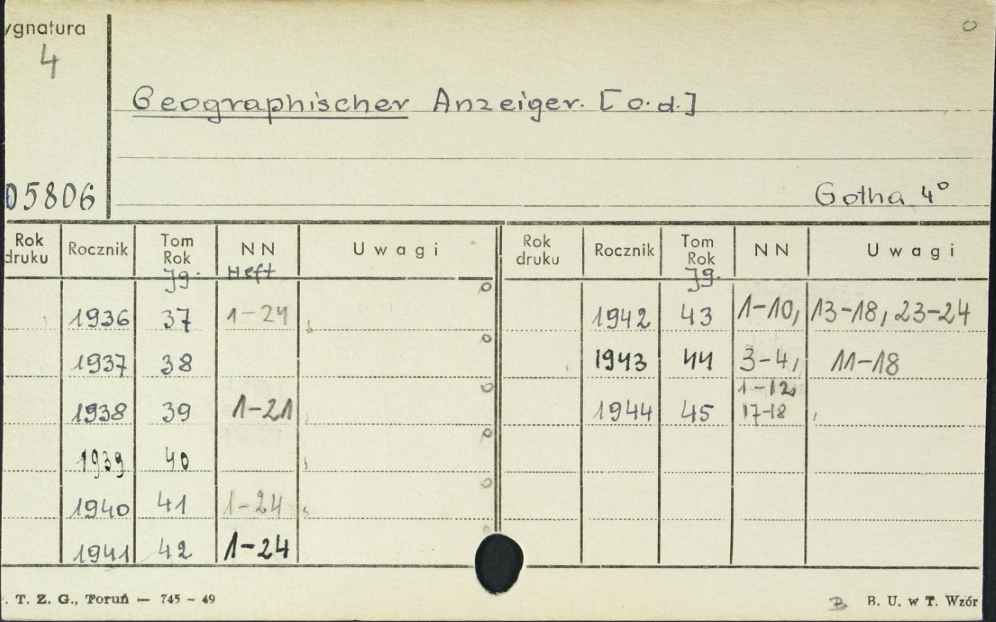 ygnatura
4
Geographischer Anzeiger. [o.d.]
05806
Gotha 4°
Rok druku Rocznik Tom Rok NN Uwagi Rok druku Rocznik Tom Rok NN Uwagi
Jg. Heft Jg.
1936 37 1-24 1942 43 1-10, 13-18, 23-24
1937 38 1943 44 3-4, 11-18
1938 39 1-21 1944 45 1-12, 17-18
1939 40
1940 41 1-24
1941 42 1-24
. T. Z. G., Toruń — 745 - 49
B. U. w T. Wzór